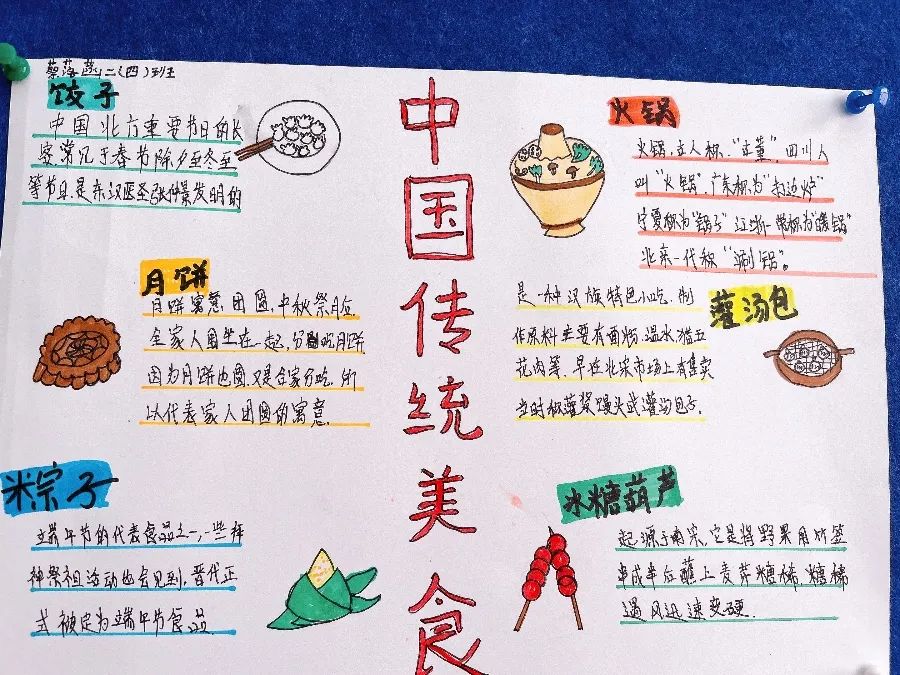 蔡落 二(四)班
饺子
中国北方重要节日的
家常见于春节除夕至冬至
等节日是东汉医圣张仲景发明的
月饼
月饼寓意团圆,中秋祭月后
全家人围坐在一起,分吃月饼
因为月饼也圆,又是合家分吃,所
以代表家人团圆的寓意.
粽子
端午节的代表食品之一,一些拜
神祭祖活动也会见到,晋代正
式被定为端午节食品
中国传统美食
火锅
火锅,古人称:"古董",四川人
叫"火锅",广东称为"打边炉"
宁夏称为"锅子"江浙一带称为"暖锅"
北京一代称"涮锅"。
灌汤包
是一种汉族特色小吃.制
作原料主要有面粉,温水猪五
花肉等.早在北宋市场上有售卖
当时称灌浆馒头或灌汤包子.
冰糖葫芦
起源于南宋,它是将野果用竹签
串成串后蘸上麦芽糖稀,糖稀
遇风迅速变硬.